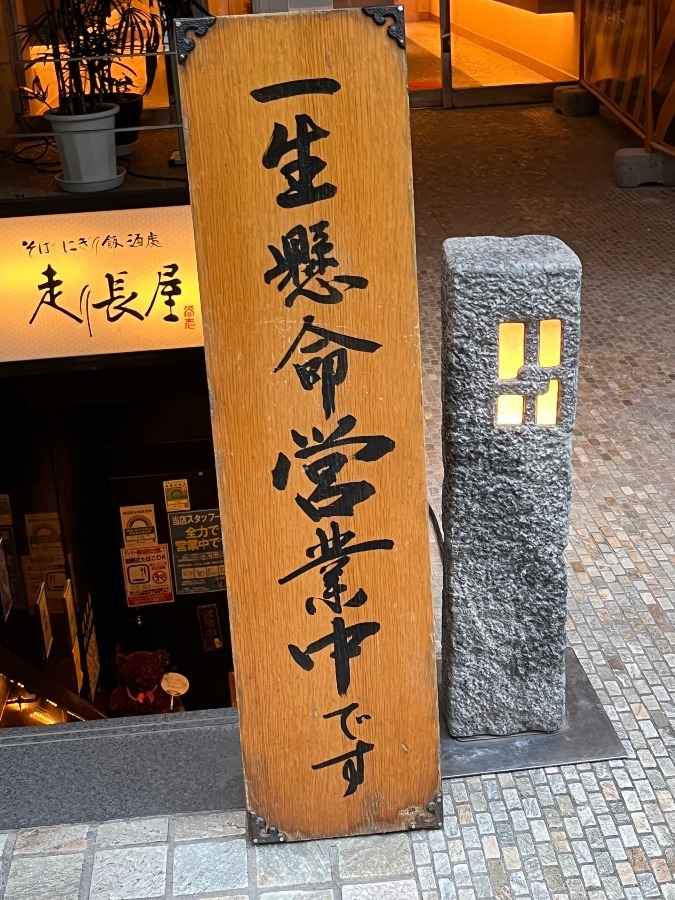 一生懸命営業中です
そばにぎり飯酒処
走り長屋
当店スタッフ一
全力で
営業中で